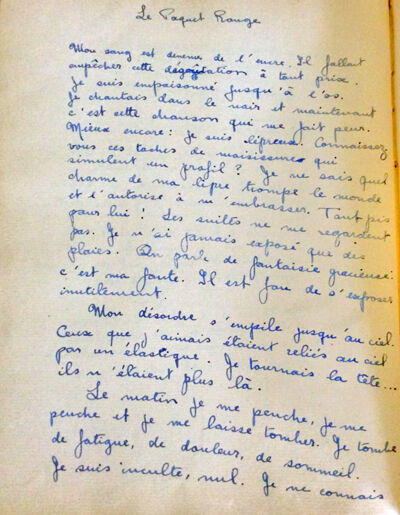 Le Paquet Rouge
Mon sang est devenu de l'encre. Il fallait
empêcher cette dégoûtation à tout prix
Je suis empoisonné jusqu'à l'os.
Je chantais dans le noir et maintenant
c'est cette chanson qui me fait peur.
Mieux encore: Je suis lépreux. Connaissez
vous ces taches de moisissures qui
simulent un profil? Je ne sais quel
charme de ma lèpre trompe le monde
et l'autorise à m'embrasser. Tant pis
pour lui! Les suites ne me regardent
pas. Je n'ai jamais exposé que des
plaies. On parle de fantaisie gracieuse:
c'est ma faute. Il est fou de s'exposer
inutilement.
Mon désordre s'empile jusqu'au ciel.
Ceux que j'aimais étaient reliés au ciel
par un élastique. Je tournais la tête...
ils n'étaient plus là.
Le matin je me penche, je me
penche et je me laisse tomber. Je tombe
de fatigue, de douleur, de sommeil.
Je suis inculte, nul. Je ne connais